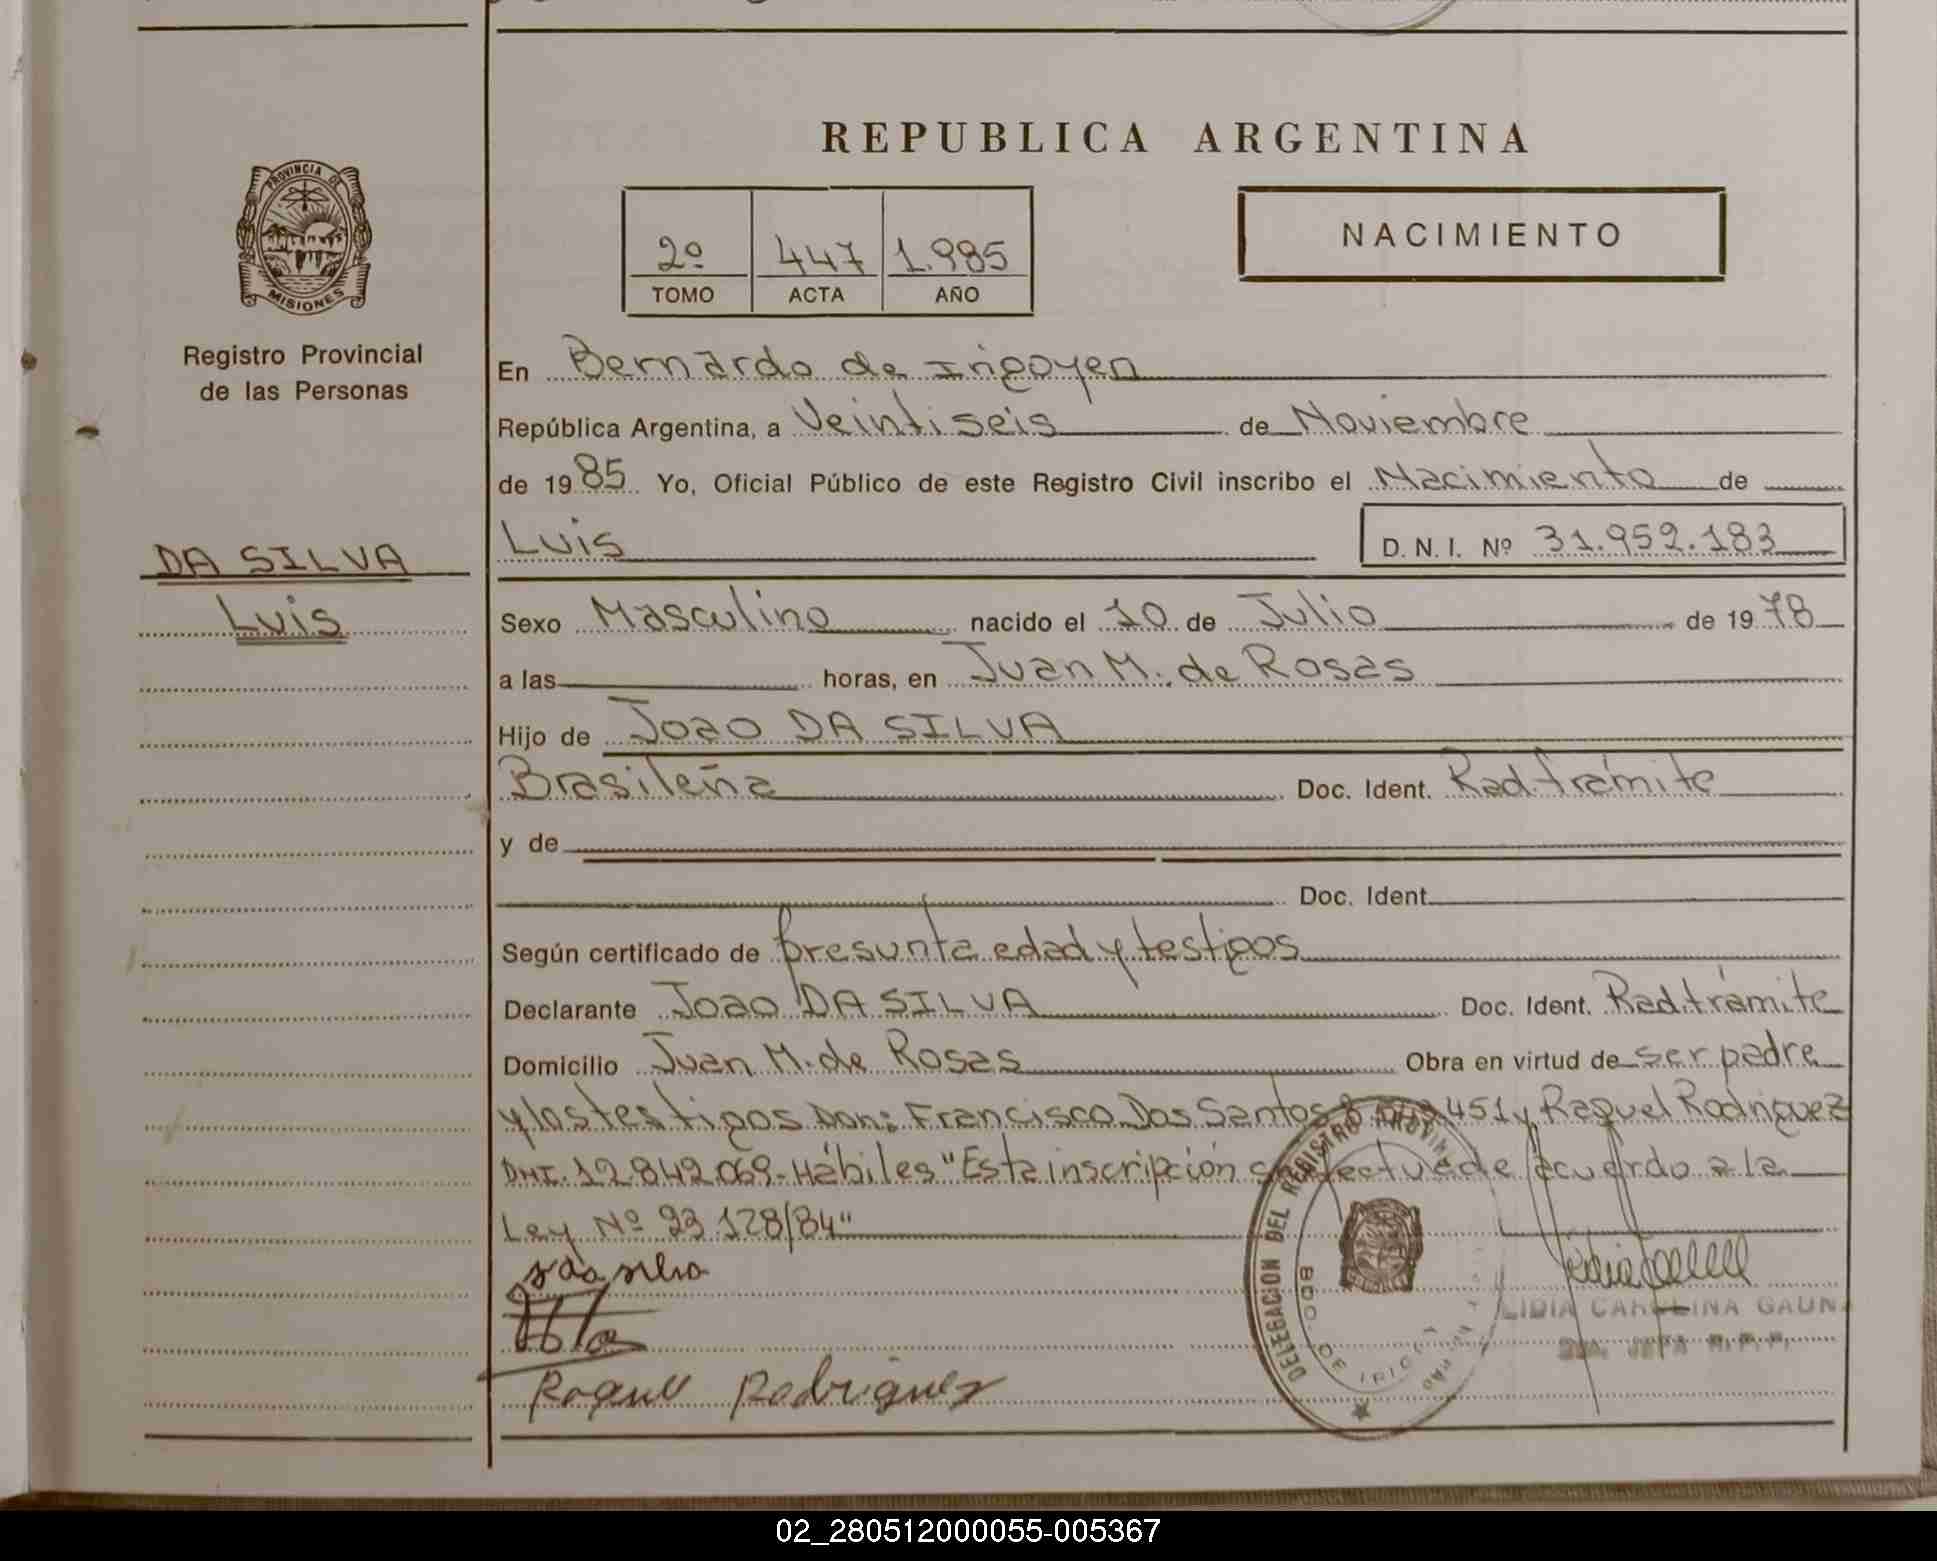 REPUBLICA ARGENTINA
PROVINCIA DE
MISIONES
Registro Provincial
de las Personas
2º 447 1.985
TOMO ACTA AÑO
NACIMIENTO
En Bernardo de Irigoyen
República Argentina, a Veintiseis de Noviembre
de 1985 Yo, Oficial Público de este Registro Civil inscribo el Nacimiento de
Luis D. N. I. Nº 31.952.183
DA SILVA
Luis
Sexo Masculino nacido el 10 de Julio de 1978
a las horas, en Juan M. de Rosas
Hijo de Joao DA SILVA
Brasileña Doc. Ident. Rad. trámite
y de
Doc. Ident.
Según certificado de presunta edad y testigos
Declarante Joao DA SILVA Doc. Ident. Rad. trámite
Domicilio Juan M. de Rosas Obra en virtud de ser padre
y los testigos Don: Francisco Dos Santos 451 y Raquel Rodriguez
DNI. 12.842.069- Hábiles "Esta inscripción de acuerdo a la
Ley Nº 23.128/84"
da silva
Raquel Rodriguez
DELEGACION DEL REGISTRO PROVINCIAL
BDO. DE IRIGOYEN
LIDIA CAROLINA GAUN
JEFA R.P.P.
02_280512000055-005367